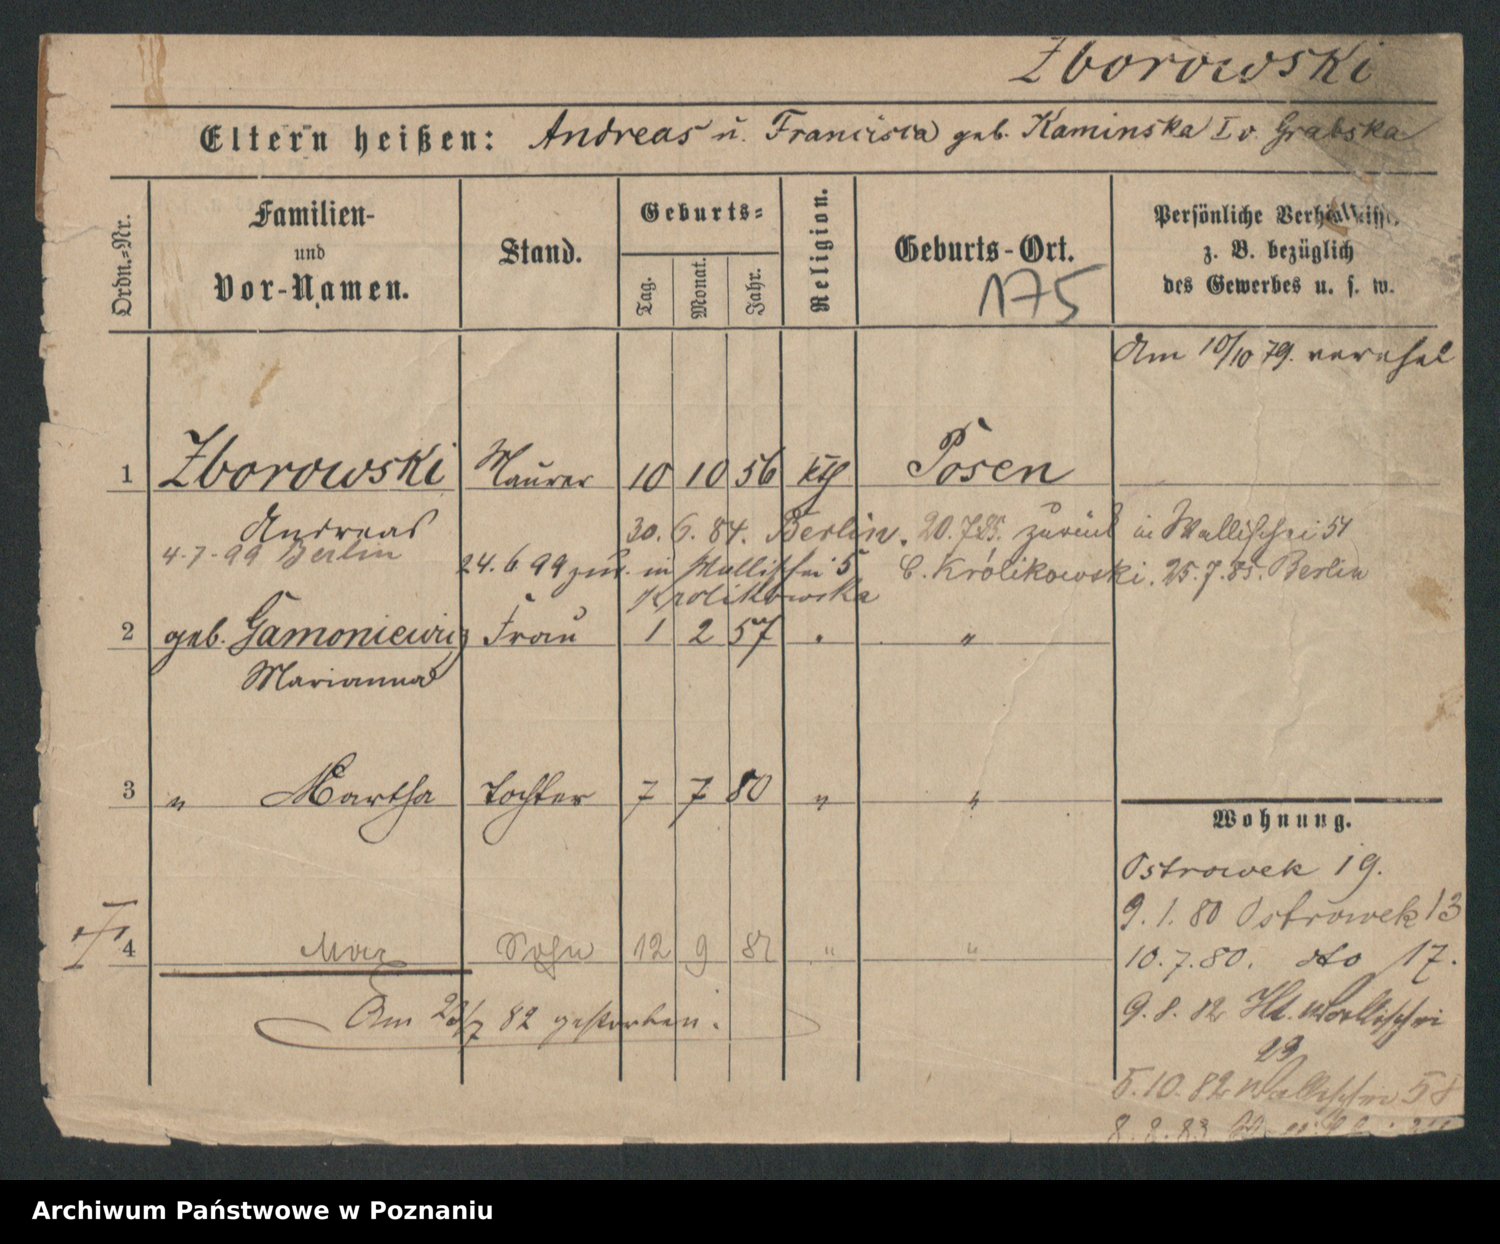 Zborowski
Eltern heißen: Andreas u. Francisca geb. Kaminska I v. Grabska
Ordn.-Nr.
Familien-
und
Vor-Namen.
Stand.
Geburts-
Tag.
Monat.
Jahr.
Religion.
Geburts-Ort.
175
Persönliche Verhältnisse
z. B. bezüglich
des Gewerbes u. s. w.
Am 10/10 79. verehel
1 Zborowski Maurer 10 10 56 kth Posen
Andreas
30. 6. 84. Berlin. 20.7.85. zurück in Wallischei 51
4-7-99 Berlin
24. 6 99 zur. in Wallischei 5
b. Królikowski. 25.7.85. Berlin
Krolikowska
2 geb. Gamoniewicz Frau 1 2 57 " "
Marianna
3 " Martha Tochter 7 7 80 " "
4 Max Sohn 12 9 81 " "
Am 23/7 82 gestorben.
Wohnung.
Ostrowek 19.
9. 1. 80 Ostrowek 13
10. 7. 80. dto 17.
9. 8. 82 Wallischei
29
5. 10. 82 Wallischei 58
8. 8. 83
Archiwum Państwowe w Poznaniu